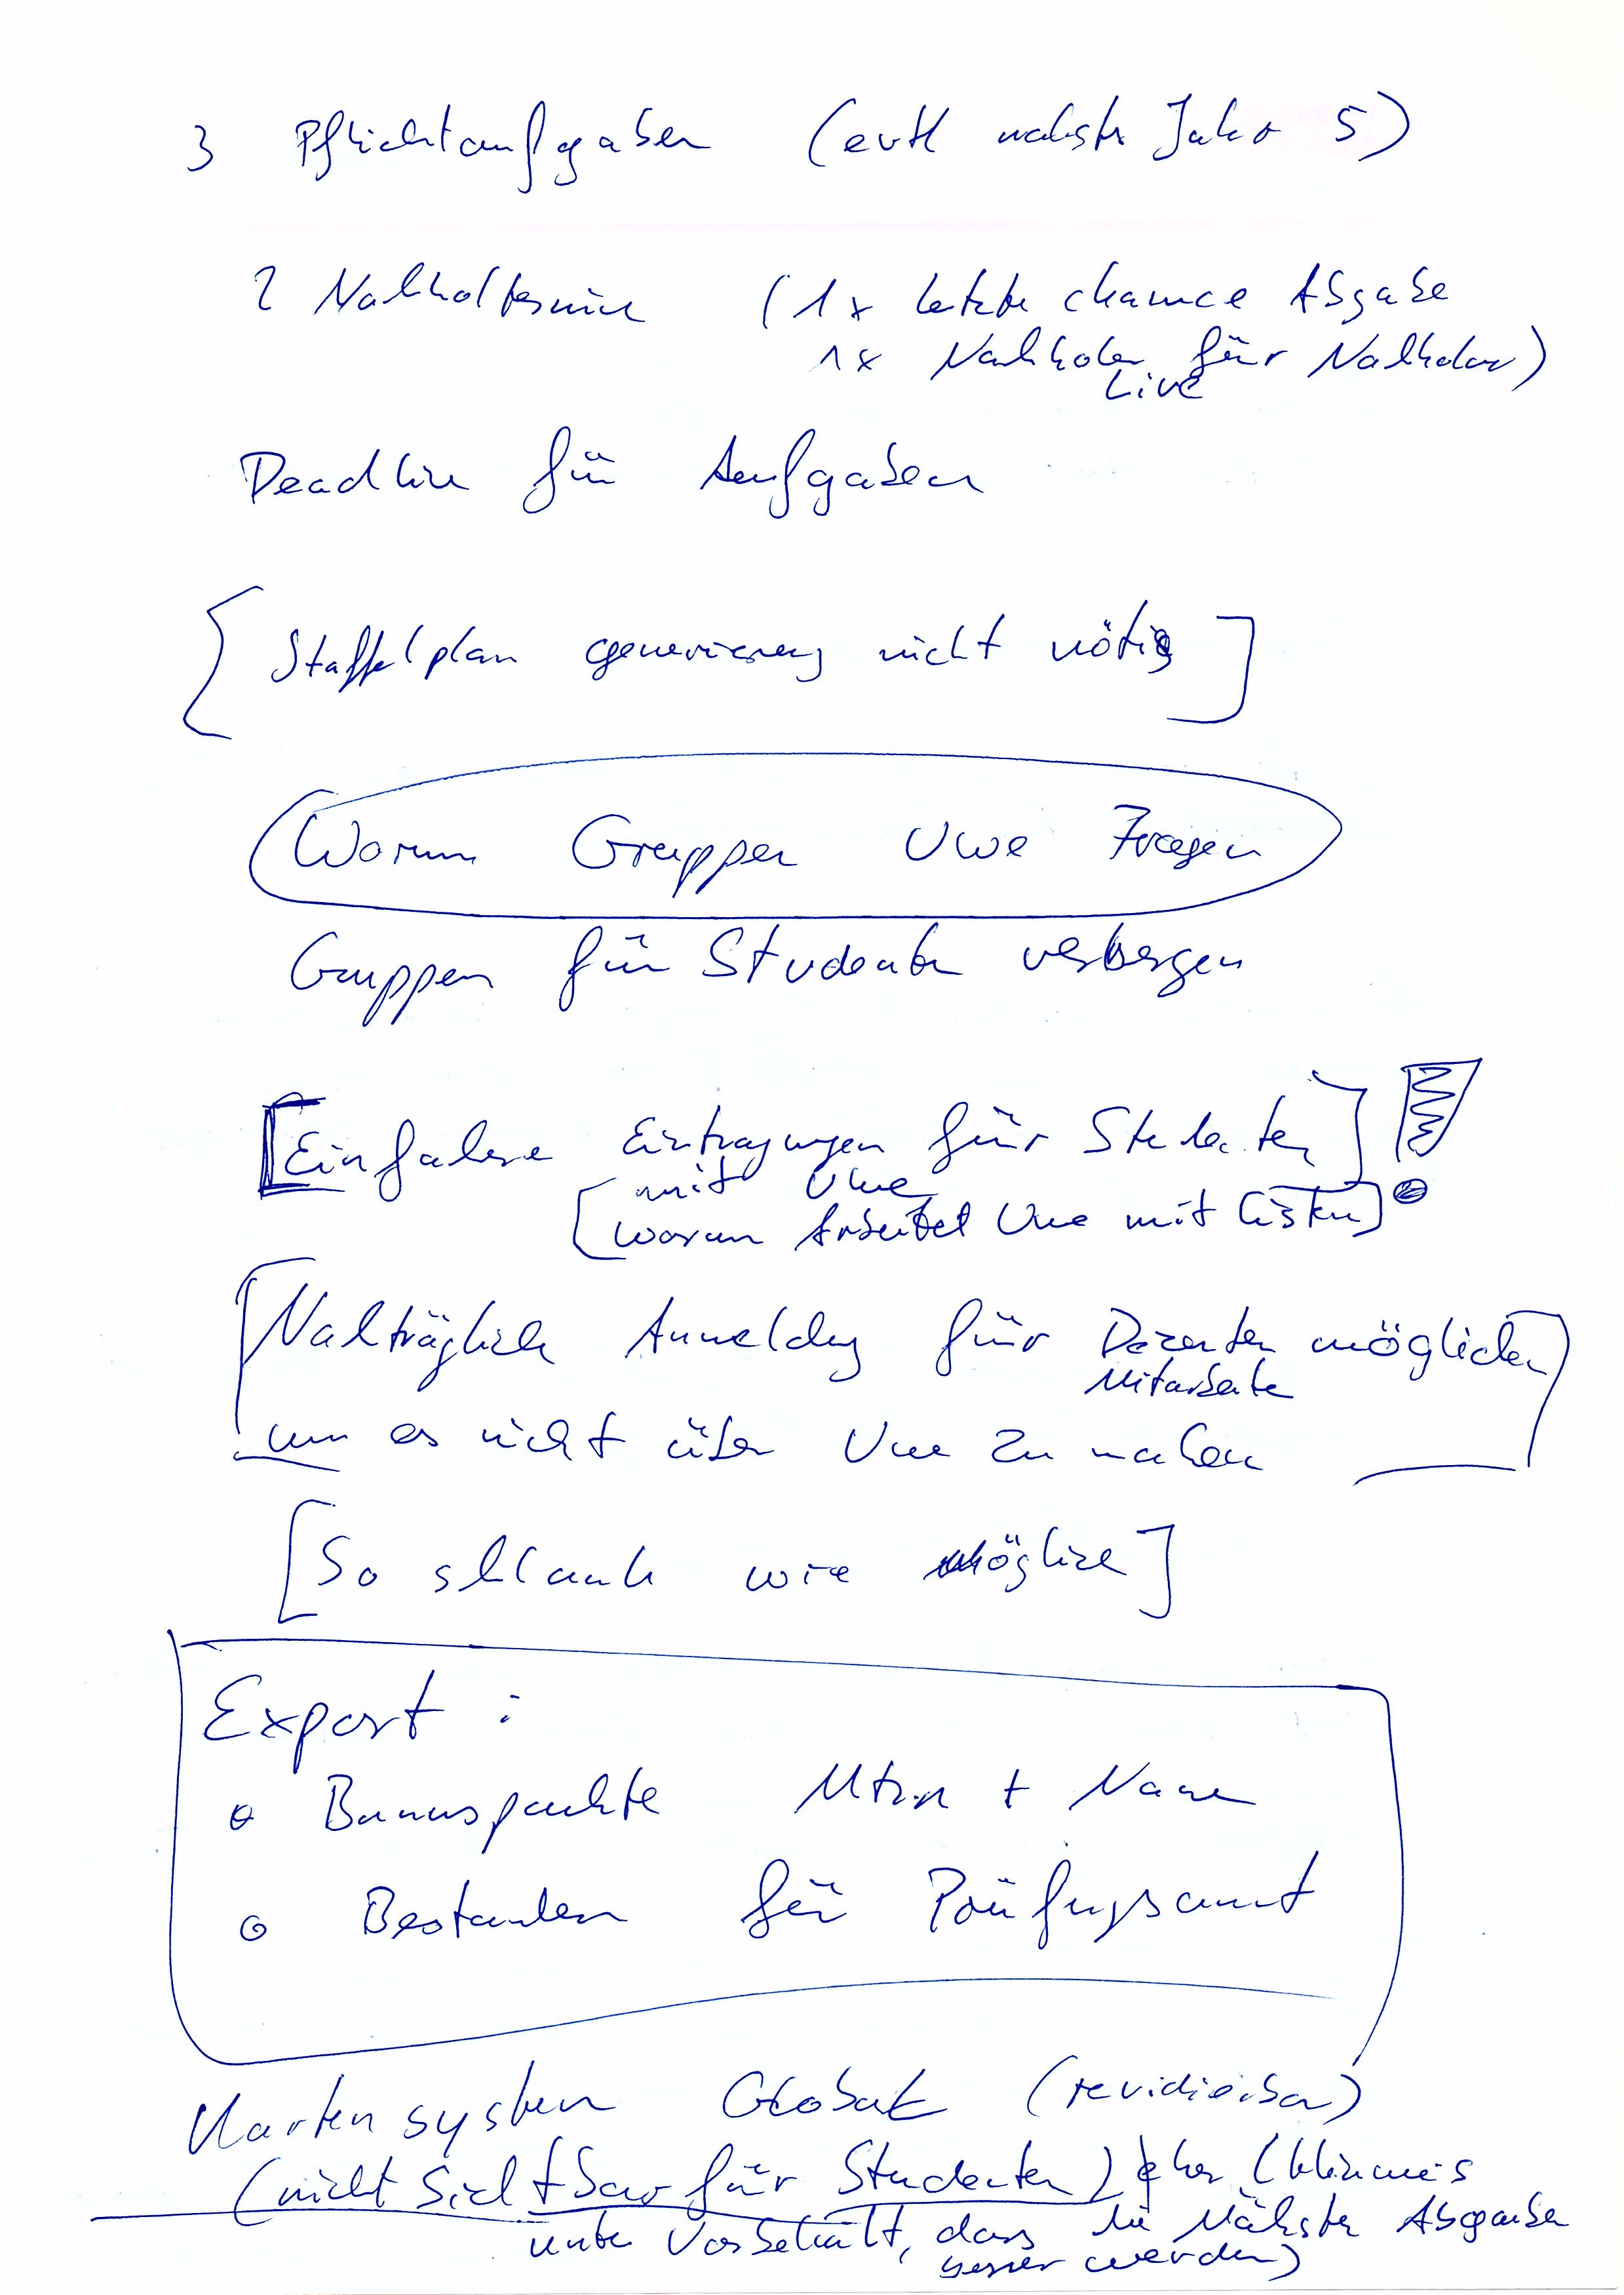 3 Pflichtaufgaben (evtl nächstes Jahr 5)
2 Nachholtermine (1x letzte chance Abgabe
1x Nachholen für Nachholer)
Live
Deadline für Aufgaben
[Staffelplan generierung nicht nötig]
Warum Gruppen Uwe Fragen
Gruppen für Studenten verbergen
[Einfachere Eintragungen für Studenten]!
mit Uwe
[warum Arbeitet Uwe mit Listen]
[Nachträgliche Anmeldung für Dozenten möglichen
Mitarbeiter
um es nicht über Uwe zu machen]
[So schlank wie möglich]
Export:
o Bonuspunkte Mtr.n + Name
o Bestanden für Prüfungsamt
Karten system Global (revidierbar)
(nicht sichtbar für Studenten) eher (Hinweis
unter Vorbehalt, dass die Nächsten Abgaben
besser werden)